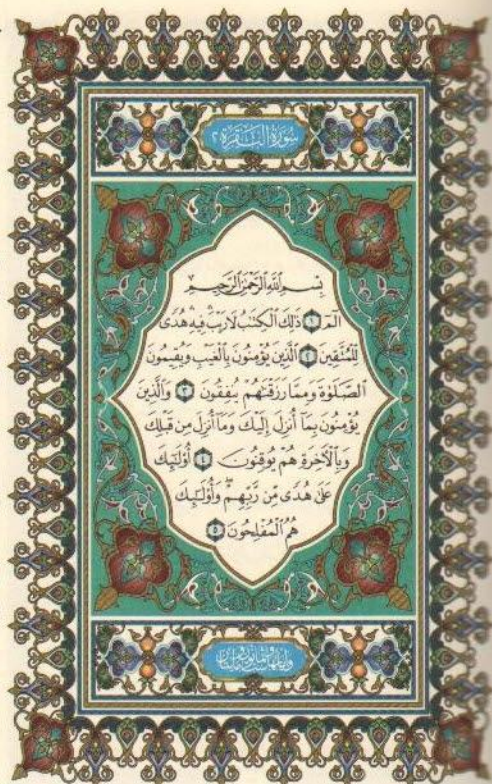 سُورَةُ الْبَقَرَةِ ٢
بِسْمِ اللَّهِ الرَّحْمَٰنِ الرَّحِيمِ
الٓمٓ ١ ذَٰلِكَ الْكِتَٰبُ لَا رَيْبَ ۛ فِيهِ ۛ هُدًى
لِّلْمُتَّقِينَ ٢ الَّذِينَ يُؤْمِنُونَ بِالْغَيْبِ وَيُقِيمُونَ
الصَّلَوٰةَ وَمِمَّا رَزَقْنَٰهُمْ يُنفِقُونَ ٣ وَالَّذِينَ
يُؤْمِنُونَ بِمَآ أُنزِلَ إِلَيْكَ وَمَآ أُنزِلَ مِن قَبْلِكَ
وَبِالْآخِرَةِ هُمْ يُوقِنُونَ ٤ أُو۟لَٰٓئِكَ
عَلَىٰ هُدًى مِّن رَّبِّهِمْ ۖ وَأُو۟لَٰٓئِكَ
هُمُ الْمُفْلِحُونَ ٥
وآياتها ست وثمانون ومائتان